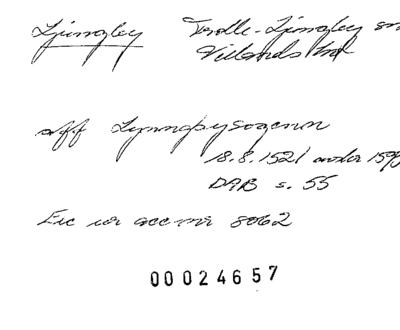 Ljungby Trolle-Ljungby sn
Villands hd
aff Lyungbysogenn
18.8.1521 under 159
DAB s. 55
Exc ur acc nr 8062
00024657